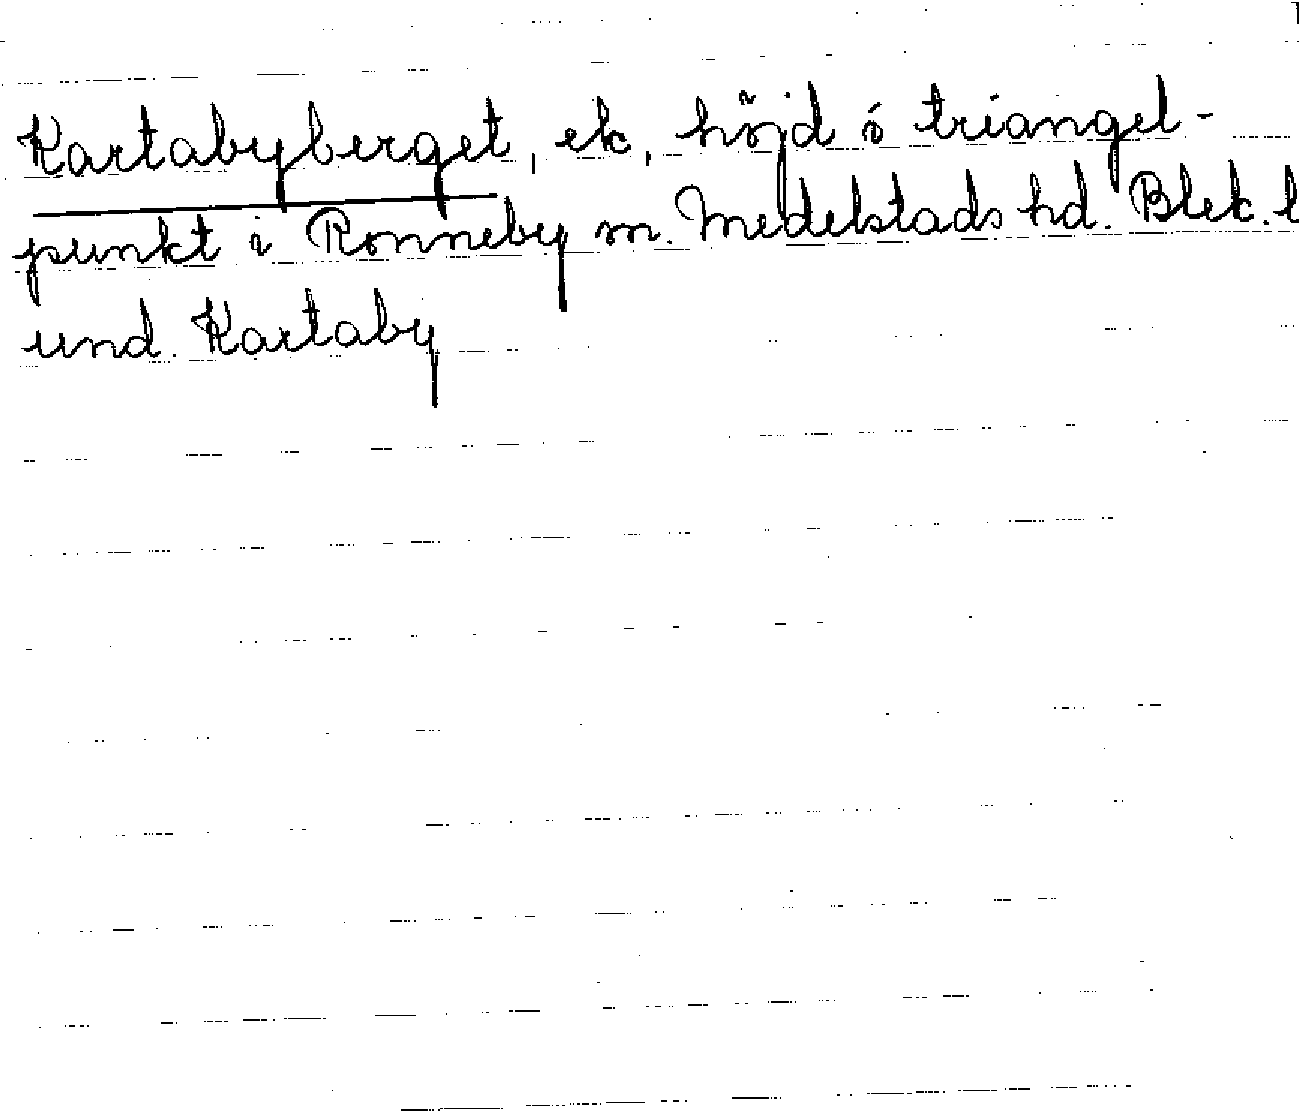 Kartabyberget, ek, höjd ó triangel-
punkt i Ronneby m. Medelstads hd. Blek. l
und. Kartaby